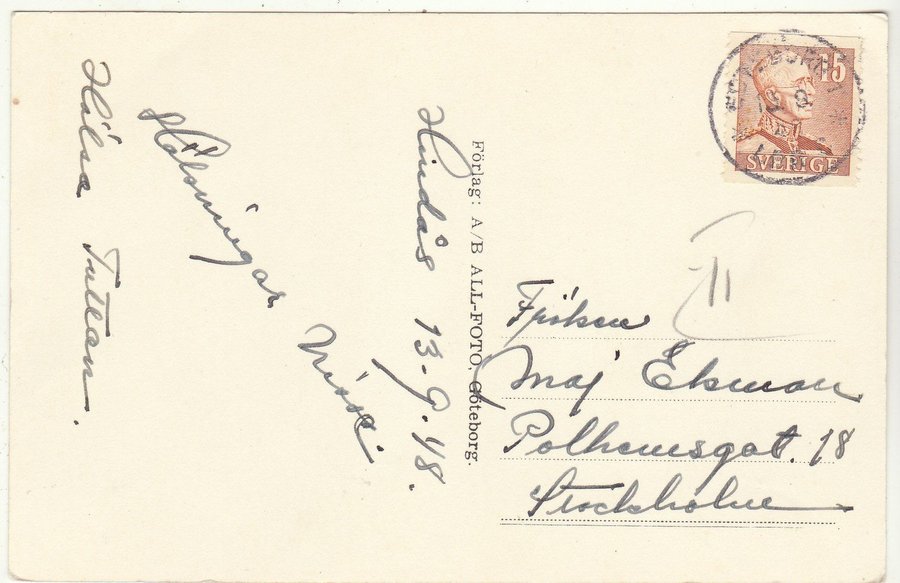 Hindås 13-9.48.
Hälsningar
Nisse.
Hälsa Tuttan.
Förlag: A/B ALL-FOTO, Göteborg.
15
SVERIGE
II
Fröken
Maj Ekman
Polhemsgat. 18
Stockholm